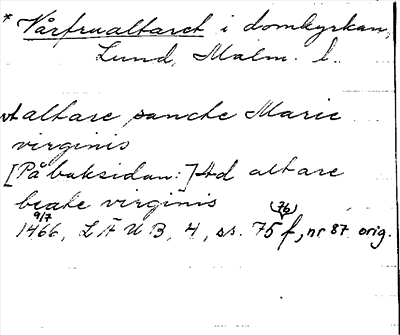 * Vårfrualtaret i domkyrkan,
Lund, Malm. l.
vt altare sancte Marie
virginis
[På baksidan:] Ad altare
beate virginis
9/7 (76)
1466, L Ä U B, 4, ss. 75 f, nr 87 orig.